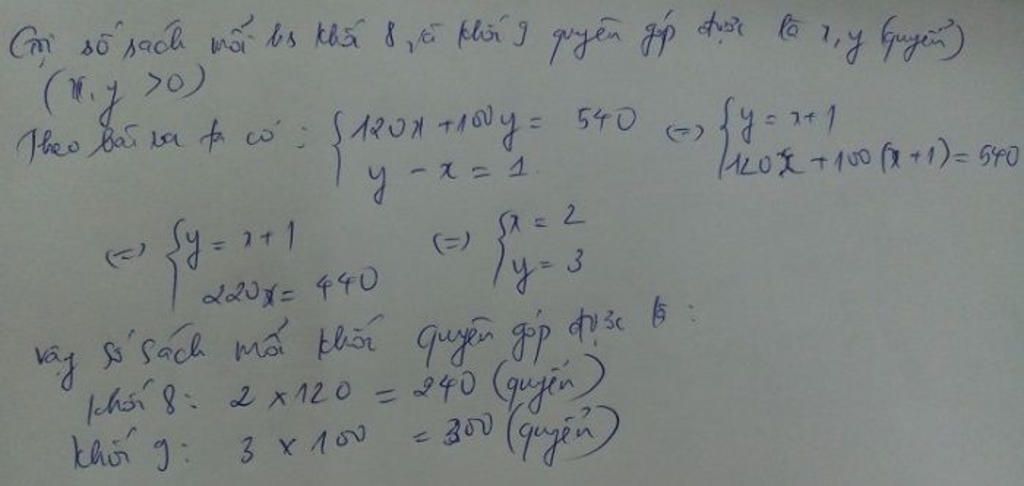 Gọi số sách mỗi hs khối 8, và khối 9 quyên góp được là x, y (quyển)
(x, y > 0)
Theo bài ra ta có : { 120x + 100y = 540 (=) { y = x + 1
y - x = 1. 120x + 100(x + 1) = 540
(=) { y = x + 1 (=) { x = 2
220x = 440 y = 3
Vậy số sách mỗi khối quyên góp được là :
khối 8: 2 x 120 = 240 (quyển)
khối 9: 3 x 100 = 300 (quyển)